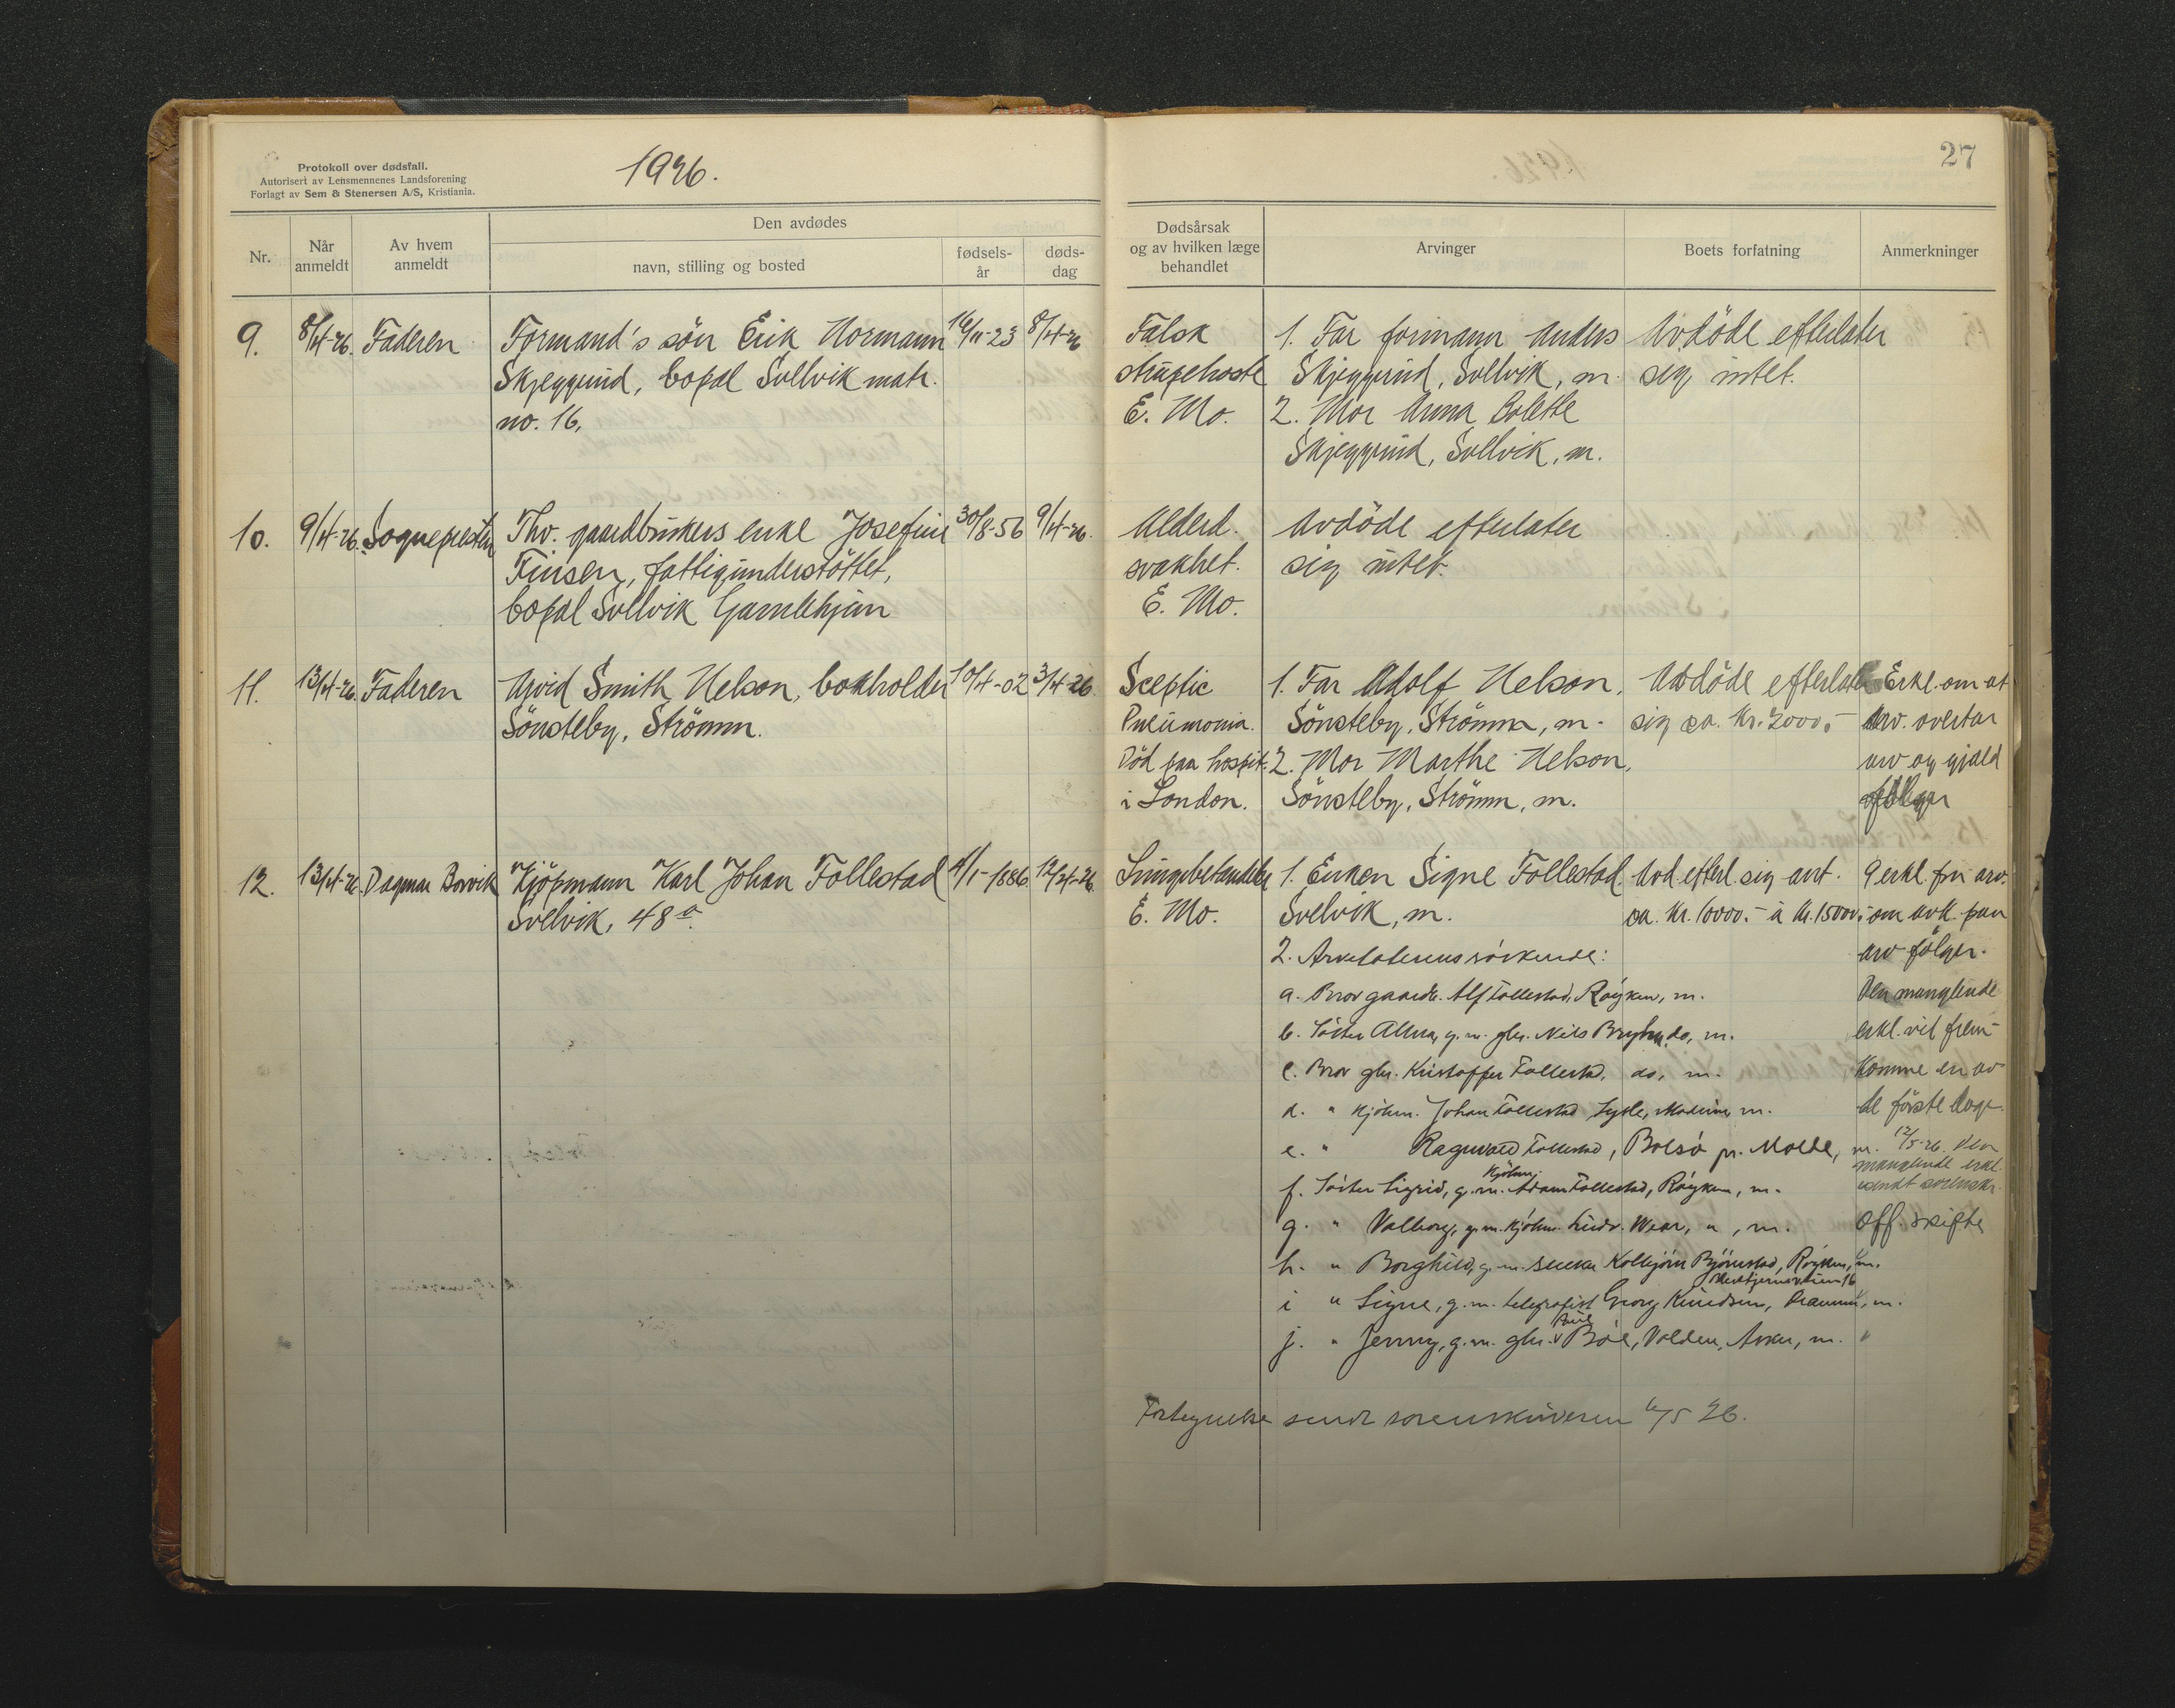 Protokoll over dødsfall.
Autorisert av Lensmennenes Landsforening
Forlagt av Sem & Stenersen A/S, Kristiania.
1926.
Nr.
Når anmeldt
Av hvem anmeldt
Den avdødes
navn, stilling og bosted
fødsels-år
døds-dag
9.
8/4-26.
Faderen
Formand's sön Erik Normann
Skjeggerud, bopæl Svelvik matr.
no. 16.
16/11-23
8/4-26
10.
9/4-26.
Sognepresten
Fhv. gaardbrukers enke Josefine
Finsen, fattigunderstöttet,
bopæl Svelvik Gamlehjem
30/8-56
9/4-26.
11.
13/4-26.
Faderen
Arvid Smith Nelson, bokholder
Sönsteby, Strömm.
10/4-02
3/4-26.
12.
13/4-26.
Dagmar Borvik
Kjöpmann Karl Johan Follestad
Svelvik, 48 a.
4/1-1886
12/4-26.
27
Dødsårsak
og av hvilken læge
behandlet
Arvinger
Boets forfatning
Anmerkninger
Falsk
strupehoste
E. Mo.
1. Far formann Anders
Skjeggerud, Svelvik, m.
2. Mor Anna Bolette
Skjeggerud, Svelvik, m.
Avdöde efterlater
sig intet.
Alderd.
svakhet.
E. Mo.
Avdöde efterlater
sig intet.
Sceptic
Pneumonia.
Död paa hospit.
i London.
1. Far Adolf Nelson,
Sönsteby, Strömm, m.
2. Mor Marthe Nelson,
Sönsteby, Strömm, m.
Avdöde efterlater
sig ca. Kr. 2000,-
Erkl. om at
arv. overtar
arv og gjæld
følger
Lungebetændelse
E. Mo.
1. Enken Signe Follestad,
Svelvik, m.
2. Arvelaterens söskende:
a. Bror gaardb. Alf Follestad, Röyken, m.
b. Söster Alma, g. m. gbr. Nils Bryhn, do, m.
c. Bror gbr. Kristoffer Follestad, do, m.
d. " kjöbm. Johan Follestad Lysle, Modum, m.
e. " Ragnvald Follestad, Bolsö pr. Molde, m.
f. Söster Sigrid, g. m. kjöbm. Adam Follestad, Röyken, m.
g. " Valborg, g. m. kjöbm. Ludv. Wear, " , m.
h. " Borghild, g. m. Kolbjörn Björnstad, Röyken, m.
i " Signe, g. m. telegrafist Georg Knudsen, Drammen, m.
j. " Jenny, g. m. gbr. Paul Böe, Volden, Asker, m.
Avd. efterl. sig ant.
ca. Kr. 10000.- à Kr. 15000,-
9 erkl. fra arv.
om avk. paa
arv følger.
Den manglende
erkl. vil frem-
komme en av
de förste dage.
12/5-26. Den
manglende erkl.
sendt sorenskr.
Off. skifte
Fortegnelse sendt sorenskriveren 6/5 26.